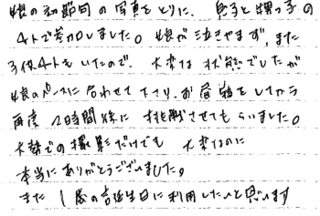 娘の初節句の写真をとりに、息子と甥っ子の
4人で参加しました。娘が泣きやまず、また
子供4人をいたので、大変な状態でしたが
娘のペースに合わせて下さり、お着替をしてから
再度2時間後に挑戦させてもらいました。
大勢での撮影だけでも大変なのに
本当にありがとうございました。
また1歳の誕生日に利用したいと思います